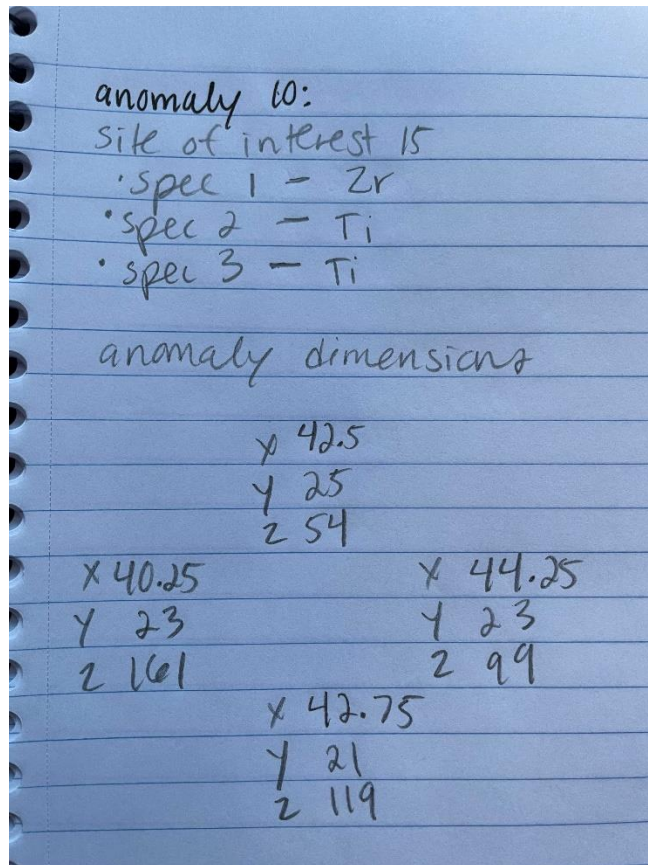 anomaly 10:
site of interest 15
• spec 1 - Zr
• spec 2 - Ti
• spec 3 - Ti
anomaly dimensions
x 42.5
y 25
z 54
x 40.25
y 23
z 161
x 44.25
y 23
z 99
x 42.75
y 21
z 119